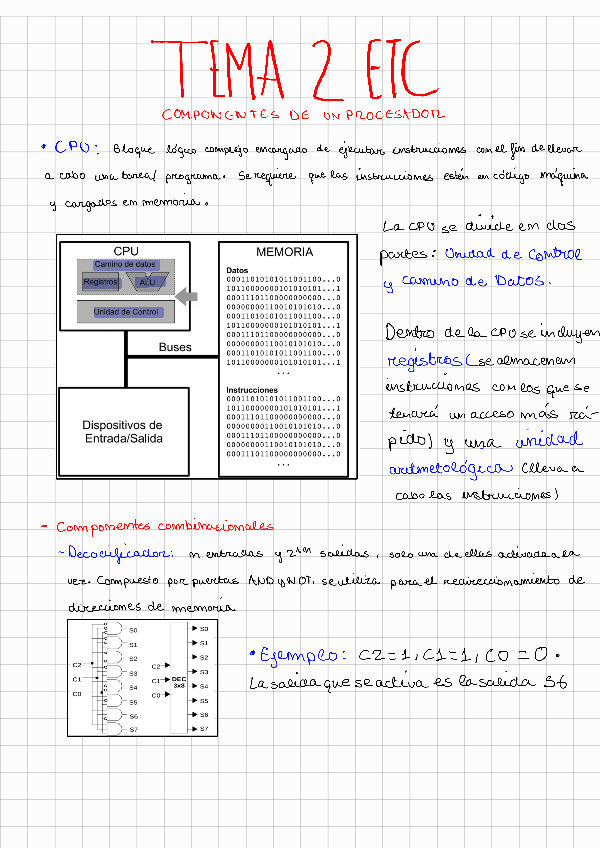 TEMA 2 ETC
COMPONENTES DE UN PROCESADOR
• CPU: Bloque lógico complejo encargado de ejecutar instrucciones con el fin de llevar
a cabo una tarea/programa. Se requiere que las instrucciones estén en código máquina
y cargadas en memoria.
CPU
Camino de datos
Registros
ALU
Unidad de Control
Buses
Dispositivos de
Entrada/Salida
MEMORIA
Datos
0001101010101011001100...0
1011000000010101010101...1
0001110110000000000000...0
0000000011001010101010...0
0001110110000000000000...0
1011000000010101010101...1
0001110110000000000000...0
0000000011001010101010...0
0001101010101011001100...0
1011000000010101010101...1
...
Instrucciones
0001101010101011001100...0
1011000000010101010101...1
0001110110000000000000...0
0000000011001010101010...0
0001110110000000000000...0
0000000011001010101010...0
0001110110000000000000...0
...
La CPU se divide en dos
partes: Unidad de Control
y Camino de Datos.
Dentro de la CPU se incluyen
registros (se almacenan
instrucciones con los que se
tenará un acceso más rá-
pido) y una unidad
aritmetológica (lleva a
cabo las instrucciones)
- Componentes combinacionales
- Decodificador: n entradas y 2^n salidas, solo una de ellas activada a la
vez. Compuesto por puertas AND y NOT, se utiliza para el redireccionamiento de
direcciones de memoria
C2
C1
C0
S0
S1
S2
S3
S4
S5
S6
S7
C2
C1
C0
DEC
3x8
S0
S1
S2
S3
S4
S5
S6
S7
• Ejemplo: C2=1, C1=1, C0=0.
La salida que se activa es la salida S6